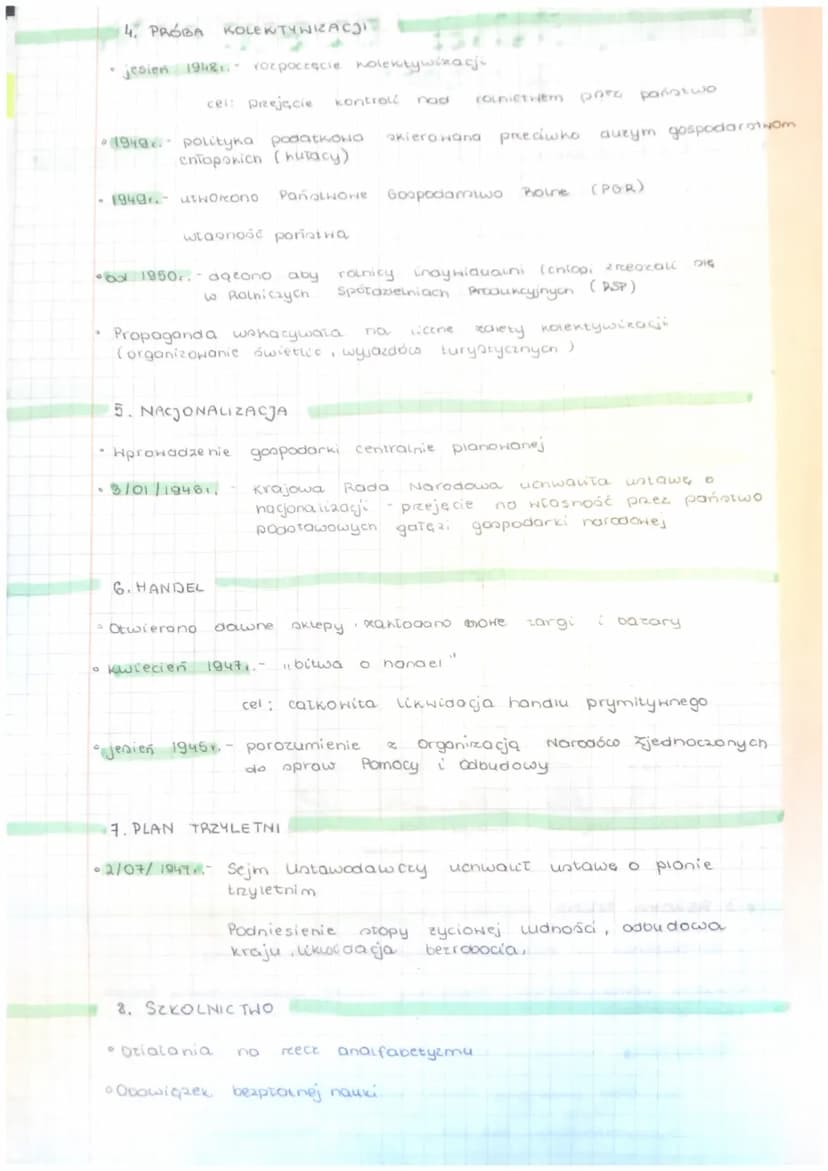 4. PRÓBA KOLEKTYWIZACJI
• jesień 1948r. - rozpoczęcie kolektywizacji
cel: przejęcie kontroli nad rolnictwem przez państwo
• 1949r. - polityka podatkowa skierowana przeciwko dużym gospodarstwom
chłopskich (kułacy)
• 1949r. - utworzono Państwowe Gospodarstwo Rolne (PGR)
własność państwa
• od 1950r. - dążono aby rolnicy indywidualni (chłopi zrzeszali się
w Rolniczych Spółdzielniach Produkcyjnych (RSP)
• Propaganda wskazywała na liczne zalety kolektywizacji
(organizowanie świetlic, wyjazdów turystycznych)
5. NACJONALIZACJA
• Wprowadzenie gospodarki centralnie planowanej
• 3/01/1946r. - Krajowa Rada Narodowa uchwaliła ustawę o
nacjonalizacji - przejęcie na własność przez państwo
podstawowych gałęzi gospodarki narodowej
6. HANDEL
• Otwierano dawne sklepy, zakładano nowe targi i bazary
• kwiecień 1947r. - "bitwa o handel"
cel: całkowita likwidacja handlu prymitywnego
• jesień 1945r. - porozumienie z Organizacją Narodów Zjednoczonych
do spraw Pomocy i Odbudowy
7. PLAN TRZYLETNI
• 2/07/1947r. - Sejm Ustawodawczy uchwalił ustawę o planie
trzyletnim
Podniesienie stopy życiowej ludności, odbudowa
kraju, likwidacja bezrobocia,
8. SZKOLNICTWO
• Działania na rzecz analfabetyzmu
• Obowiązek bezpłatnej nauki